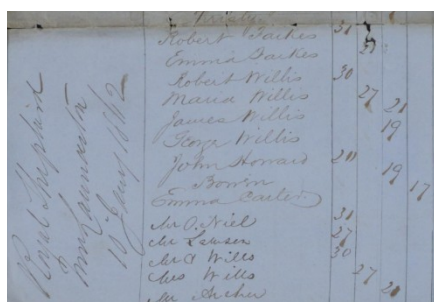 Royal Shepherd
from Launceston
15 Jany 1862
Christy
Robert Parkes 31
Emma Parkes 31
Robert Willis 30
Maria Willis 27
James Willis 21
George Willis 19
John Howard 20
Bowin 19
Emma Carter 17
Mr O. Niel 31
Mr Lawson 27
Mr A Wills 30
Mrs Wills 27
Mr Archer 20